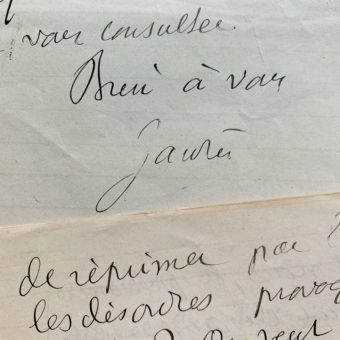 vous consulter.
Bien à vous
Jaurès
de réprimer par
les désordres provoq